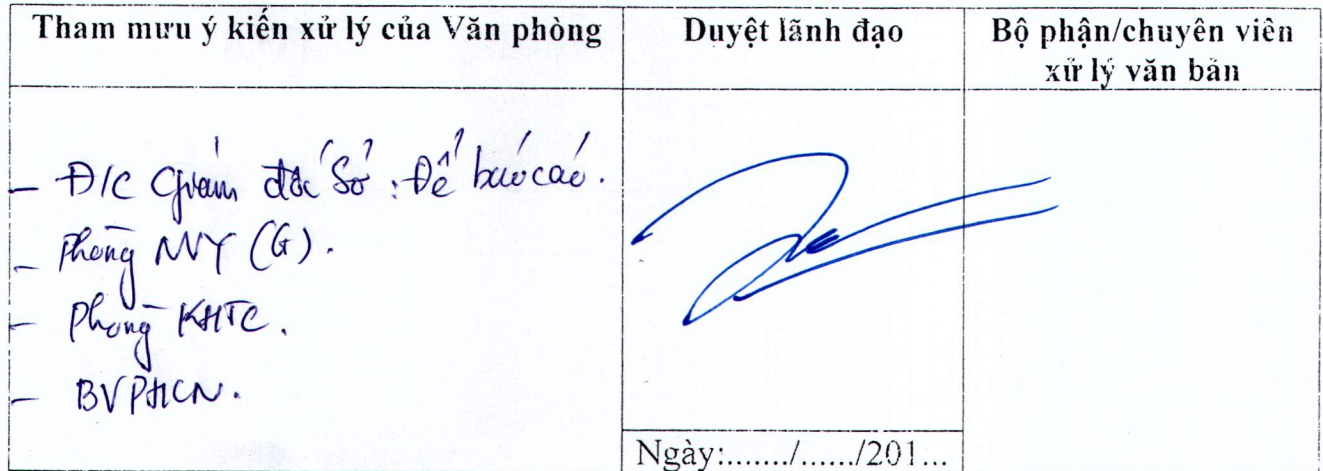 Tham mưu ý kiến xử lý của Văn phòng
Duyệt lãnh đạo
Bộ phận/chuyên viên
xử lý văn bản
- Đ/C Giám đốc Sở : Để báo cáo.
- Phòng NVY (G).
- Phòng KHTC.
- BVPHCN.
Ngày:......./....../201...